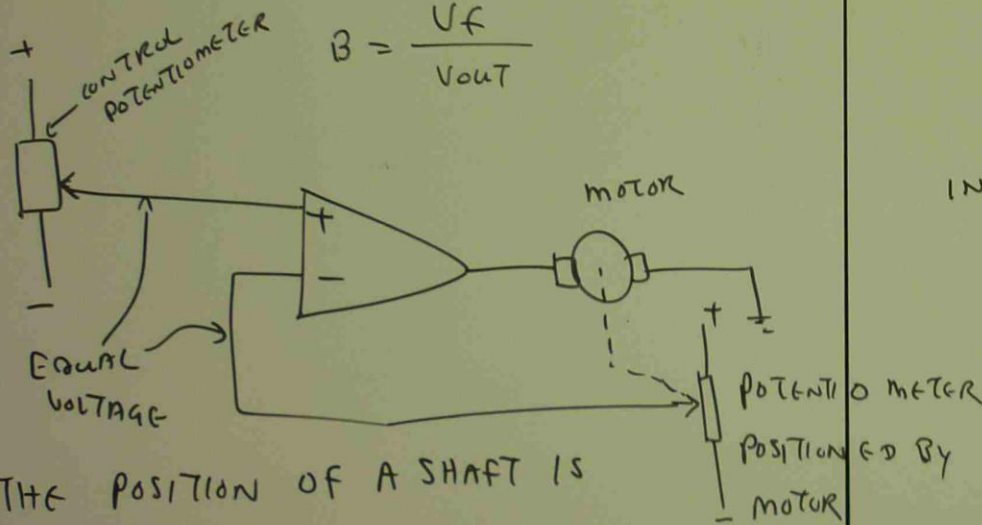 +
CONTROL
POTENTIOMETER
B = Vf / VOUT
MOTOR
IN
+
−
−
EQUAL
VOLTAGE
+
POTENTIOMETER
POSITIONED BY
MOTOR
−
THE POSITION OF A SHAFT IS